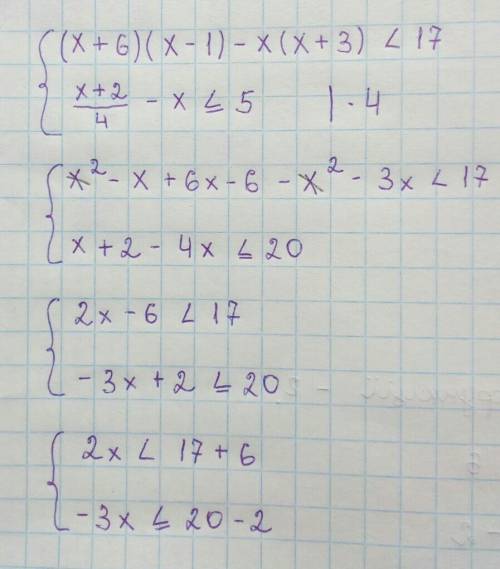 (x + 6)(x - 1) - x(x + 3) < 17
x+2/4 - x ≤ 5 | · 4
x² - x + 6x - 6 - x² - 3x < 17
x + 2 - 4x ≤ 20
2x - 6 < 17
- 3x + 2 ≤ 20
2x < 17 + 6
- 3x ≤ 20 - 2